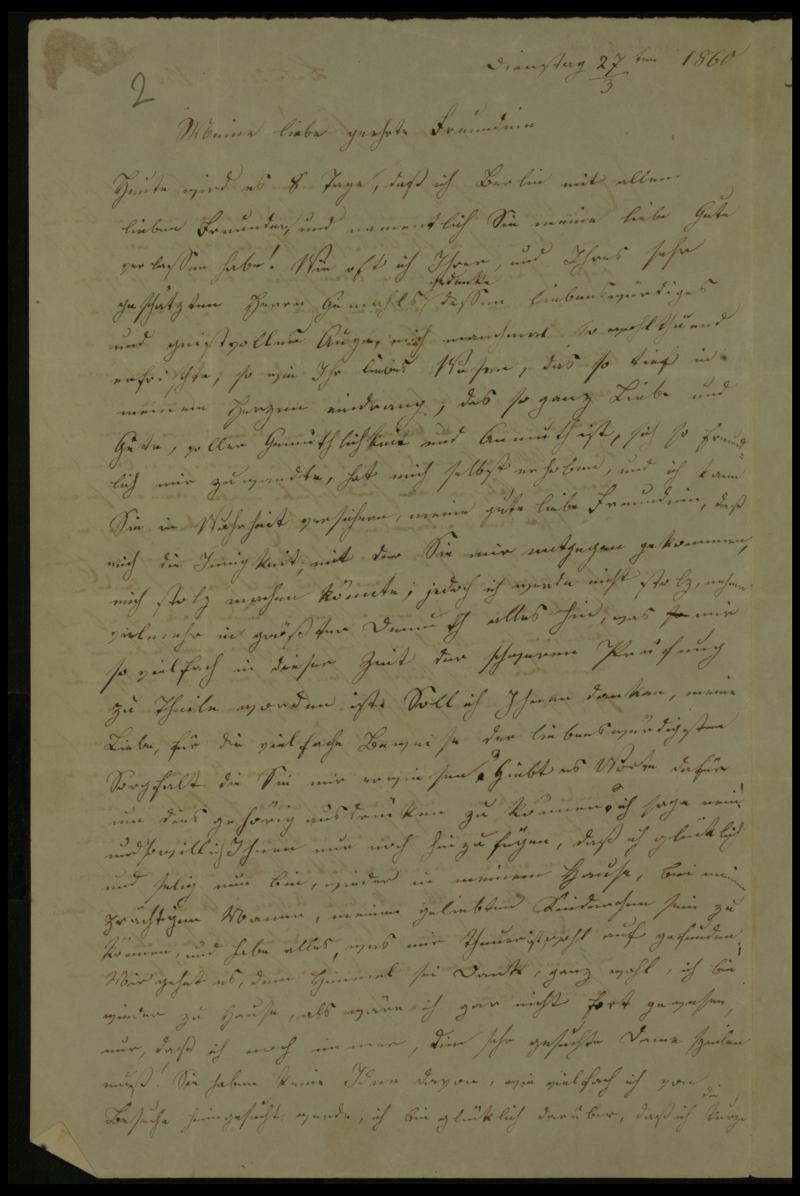 2
Dienstag 27/3 ten 1860
Meine liebe geehrte Freundin
Heute wird es 8 Tage, daß ich Berlin mit allen
lieben Freunden, und namentlich Sie meine liebe Gute
verlassen habe! Wie oft ich Ihrer, und Ihres sehr
geschätzten Herrn Gemahls gedenke dessen liebenswürdiges
und geistvolles Auge, mich manchmal so wohlthuend
erfrischte; so wie Ihr liebes Wesen, das so tief in
meinem Herzen eindrang, das so ganz Liebe und
Güte, voller Gemüthlichkeit und Anmuth ist, sich so freund-
lich mir zuwandte, hat mich selbst erhoben, und ich kann
Sie in Wahrheit versichern, meine gute liebe Freundin, daß
mich die Innigkeit, mit der Sie mir entgegen gekommen,
mich stolz machen könnte; jedoch ich werde nicht stolz, nehme
vielmehr in größter Demuth alles hin, was mir
so vielfach in dieser Zeit der schweren Prüfung
zu Theile worden ist. Soll ich Ihnen danken, meine
Liebe, für die vielfache Beweise der liebenswürdigsten
Sorgfalt die Sie mir erwiesen? Giebt es Worte dafür
um dies gehörig ausdrücken zu können? ich sage nein!
und will Ihnen nur noch hinzufügen, daß ich glücklich
und selig nun bin, wieder in meinem Hause, bei mein
prächtigen Manne, meinen geliebten Kinderchen sein zu
können, und habe alles, was mir theuer ist wohl auf gefunden.
Mir gehet es, dem Himmel sei Dank, ganz wohl, ich bin
wieder zu Hause, als wäre ich gar nicht fort gewesen,
nur, daß ich noch immer, die sehr gesuchte Dame spielen
muß! Sie haben keine Idee davon, wie vielfach ich von
Besuche heimgesucht werde, ich bin glücklich darüber, daß ich die Kurze